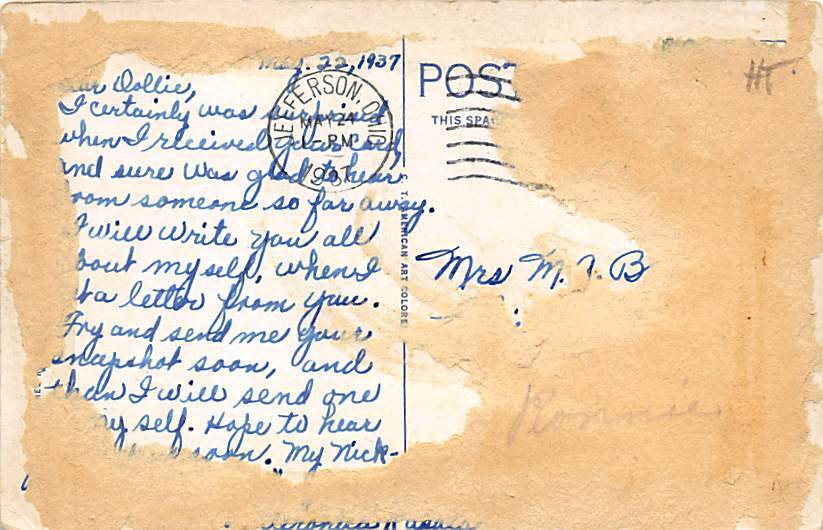 22, 1937
Dollie,
I certainly was surprised
when I received your card,
and sure was glad to hear
from someone so far away.
I will write you all
bout myself, when I
a letter from you.
Try and send me your
snapshot soon, and
than I will send one
myself. Hope to hear
soon. My Nick-
JEFFERSON, OHIO
MAY 24
1-PM
1937
POST
THIS SPAC
C. T. AMERICAN ART COLORED
HT
Mrs M. T. B
Ronnie